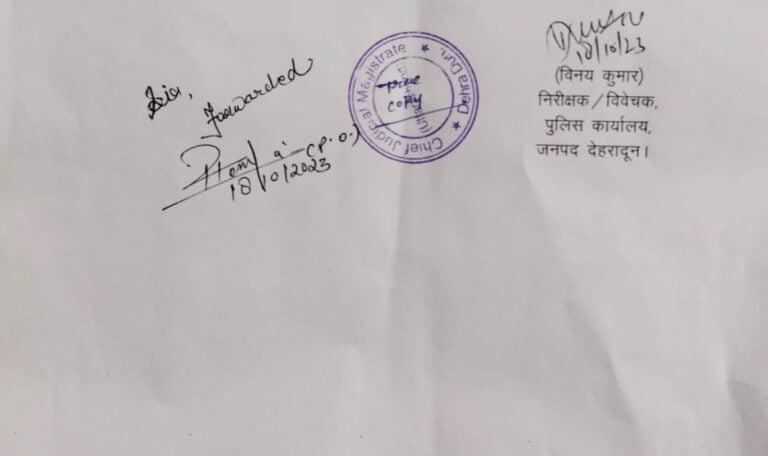 Sir,
Forwarded
(P.O.)
18/10/2023
Chief Judicial Magistrate
★ Dehra Dun. ★
True
Copy
18/10/23
(विनय कुमार)
निरीक्षक/विवेचक,
पुलिस कार्यालय,
जनपद देहरादून।